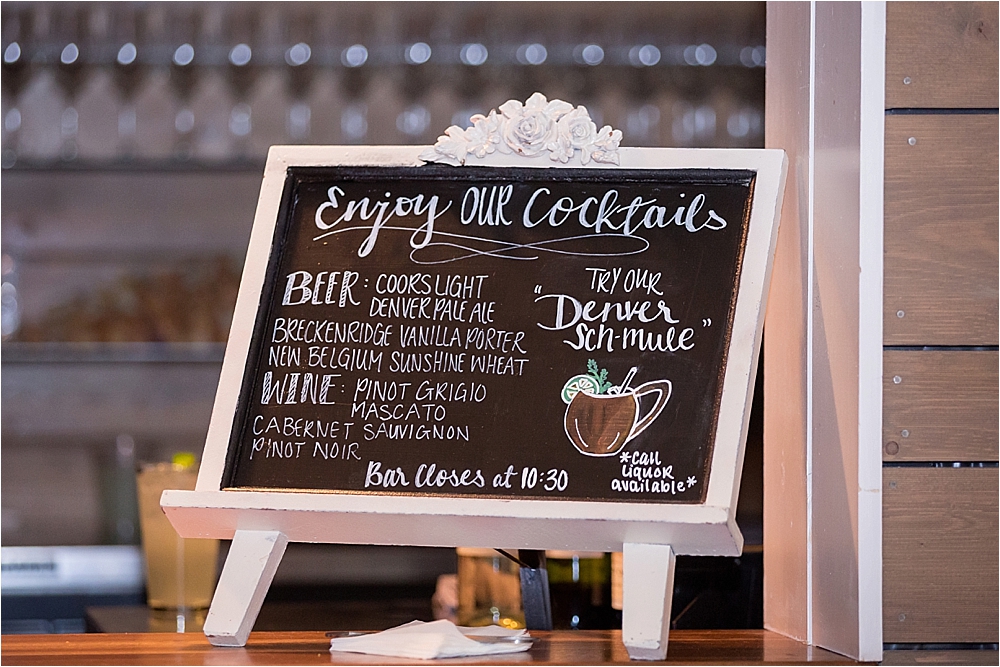 Enjoy OUR Cocktails
BEER: COORS LIGHT
DENVER PALE ALE
BRECKENRIDGE VANILLA PORTER
NEW BELGIUM SUNSHINE WHEAT
WINE: PINOT GRIGIO
MASCATO
CABERNET SAUVIGNON
PINOT NOIR
TRY OUR
"Denver
Sch-mule"
*Call
liquor
available*
Bar Closes at 10:30